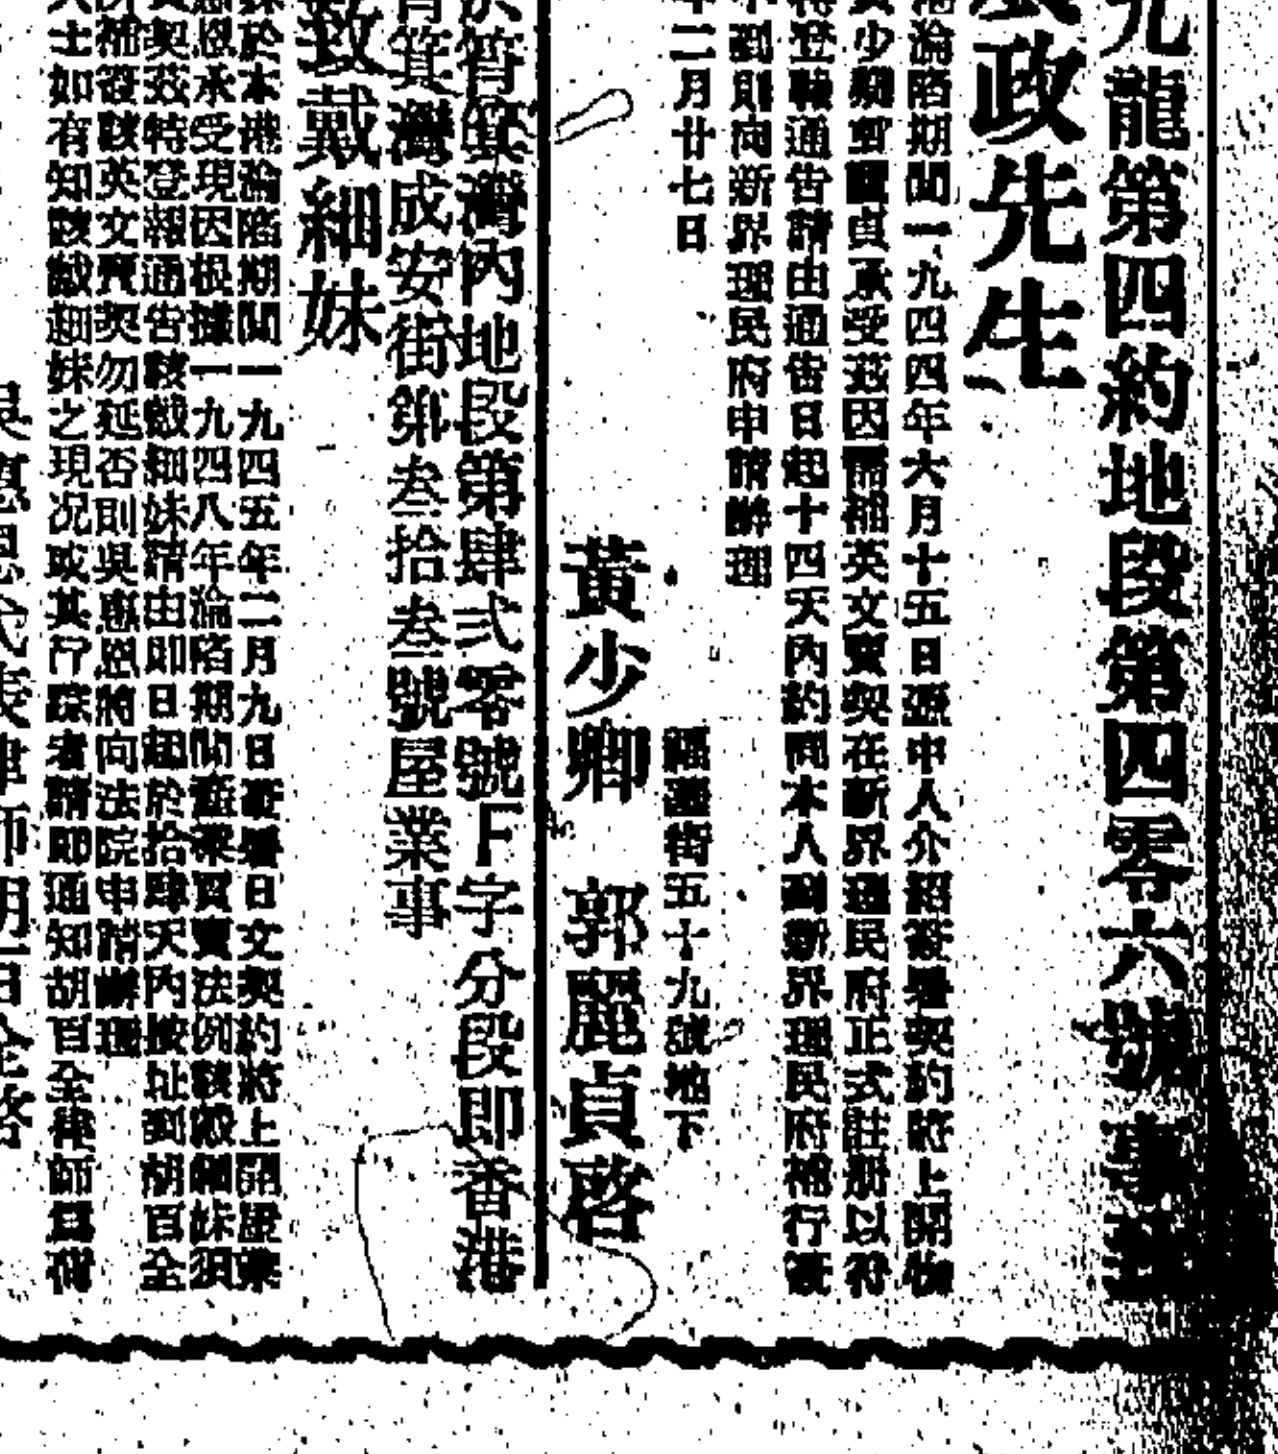 九龍第四約地段第四零六號事致
政先生
淪陷期間一九四四年六月十五日張中人介紹簽署契約將上開物
少卿郭麗貞承受茲因需補英文賣契在新界理民府正式註册以符
特登報通告請由通告日起十四天內約同本人到新界理民府補行簽
不到則向新界理民府申請辦理
二月廿七日
福運街五十九號地下
黃少卿 郭麗貞啓
筲箕灣內地段第肆弍零號F字分段即香港
筲箕灣成安街第叁拾叁號屋業事
致戴細妹
於本港淪陷期間一九四五年二月九日簽署日文契約將上開屋業
恩承受現因根據一九四八年淪陷期間產業買賣法例該戴細妹須
契茲特登報通告該戴細妹請由即日起於拾肆天內按址到胡百全
補簽該英文賣契勿延否則吳惠恩將向法院申請辦理
士如有知該戴細妹之現况或其行踪者請即通知胡百全律師爲荷
吳惠恩代表律師胡百全啓